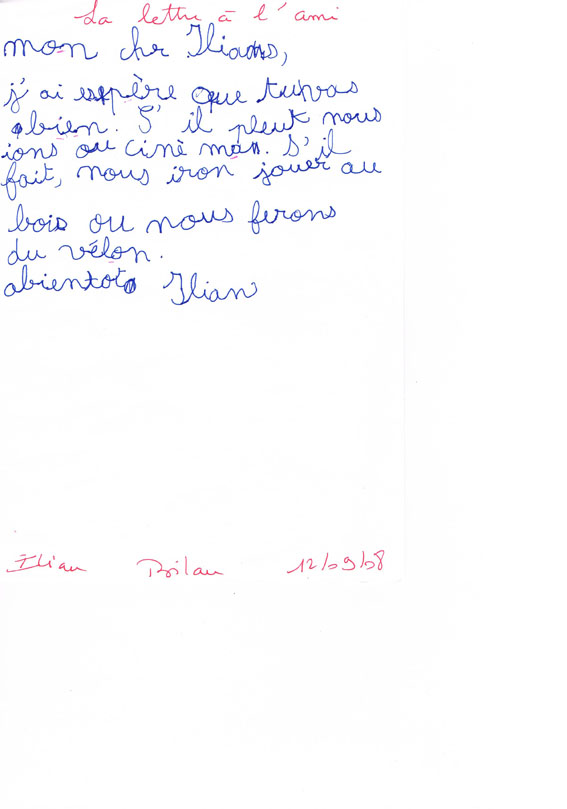 La lettre à l'ami
mon cher Ilians,
j'ai espère que tuvas
bien. S'il pleut nous
ions au cinè man. S'il
fait, nous iron jouer au
bois ou nous ferons
du vélon.
abientoto Ilian
Ilian Bilan 12/09/08